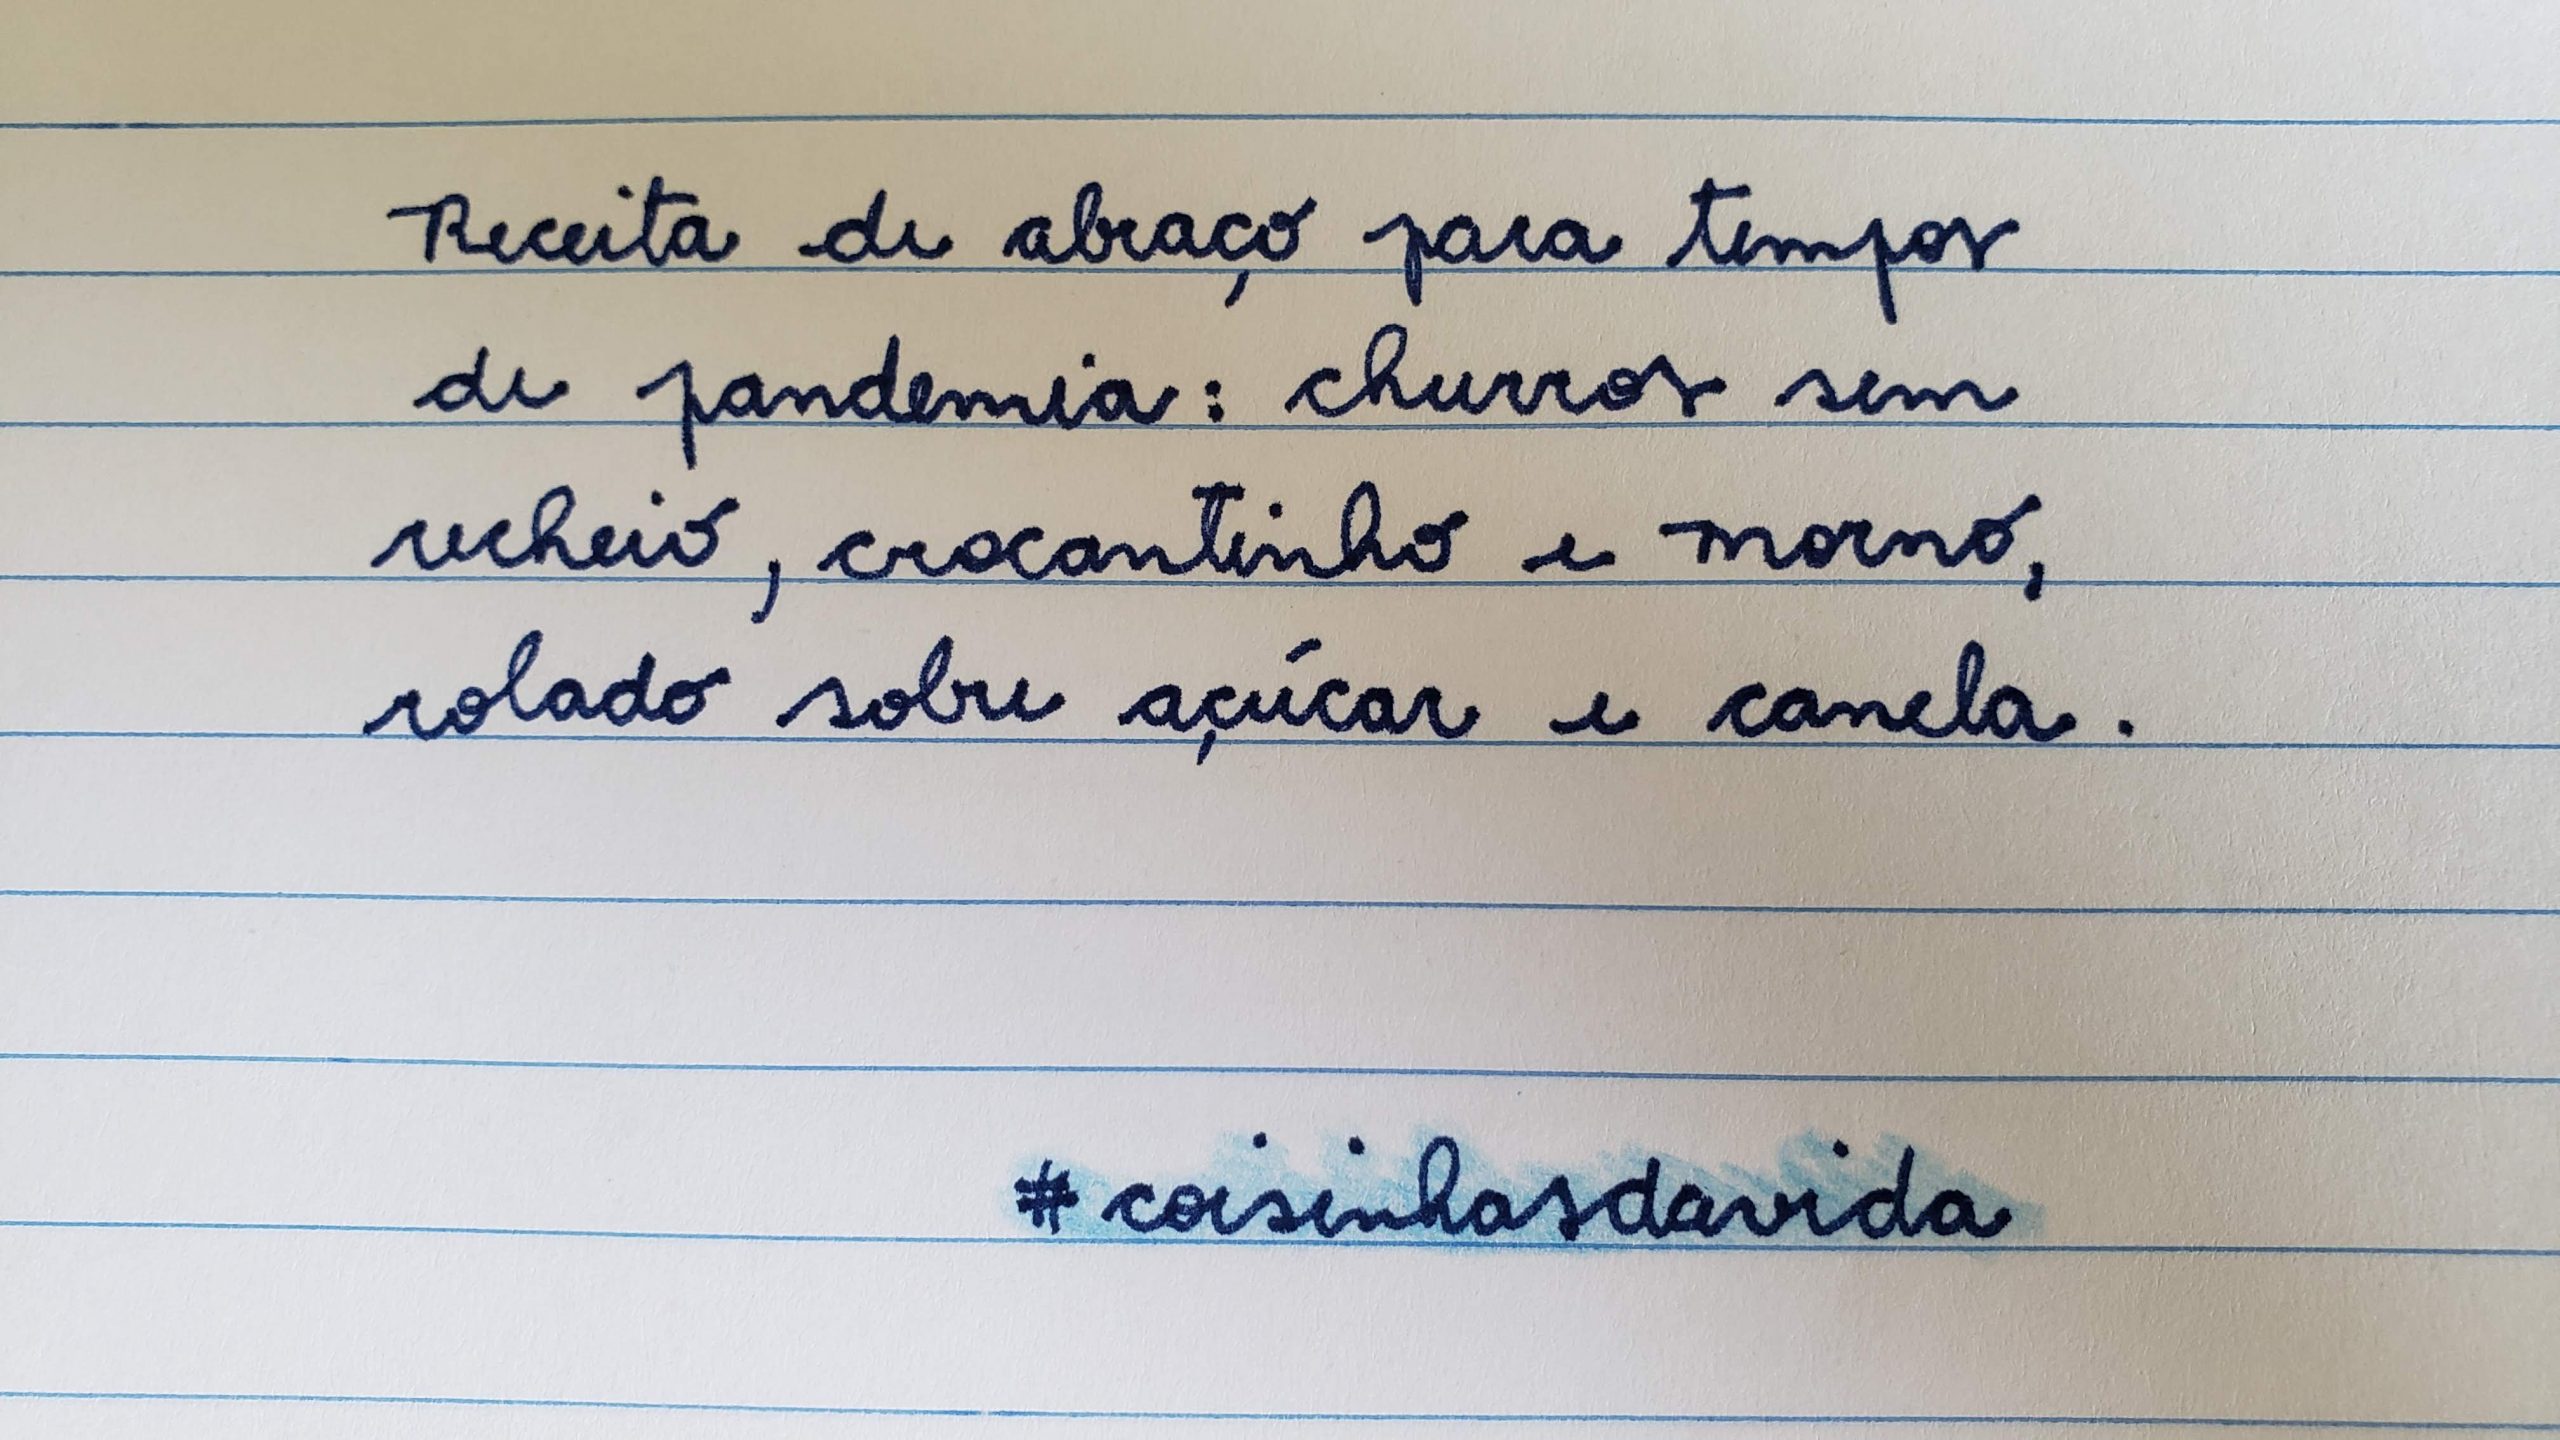 Receita de abraço para tempos
de pandemia: churros sem
recheio, crocantinho e morno,
rolado sobre açúcar e canela.
#coisinhasdavida